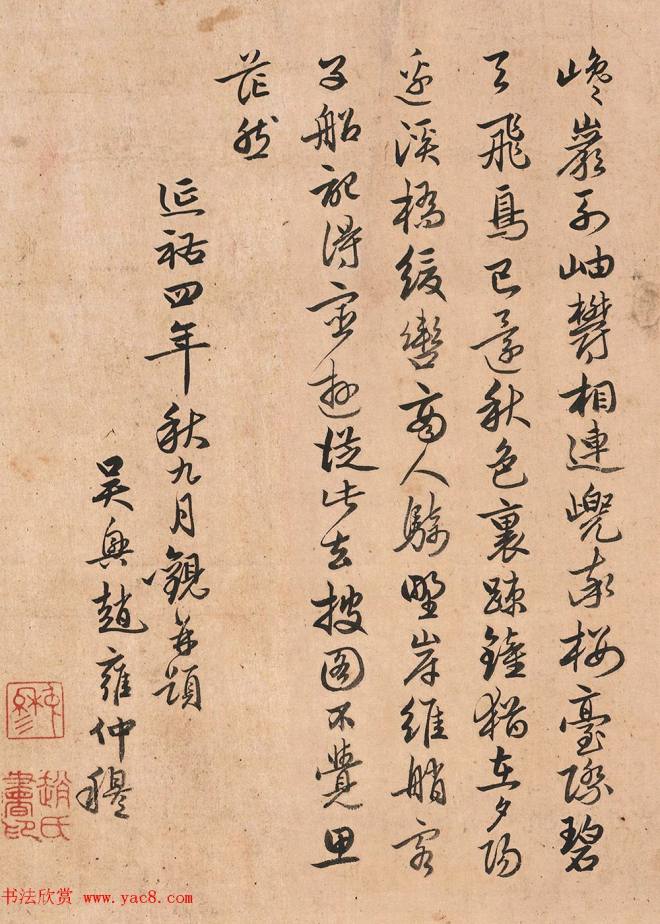 巉巖列岫鬱相連樓臺際碧
天飛鳥已還秋色裏踈鐘猶在夕陽
邊溪橋緩轡高人騎野岸維艄客
子船記得遊從此去披圖不覺思
茫然
延祐四年秋九月觀并題
吳興趙雍仲穆
趙氏書印
书法欣赏 www.yac8.com